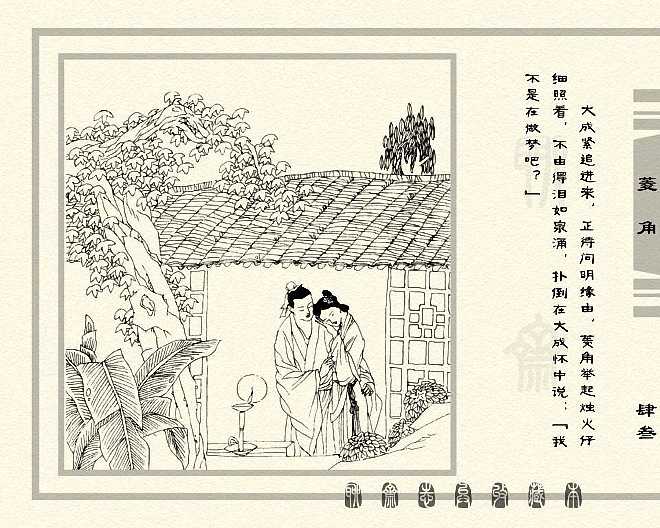 大成紧追进来，正将问明缘由，菱角举起烛火仔
细照看，不由得泪如泉涌，扑倒在大成怀中说：「我
不是在做梦吧？」
菱角
肆叁
聊斋志异收藏本